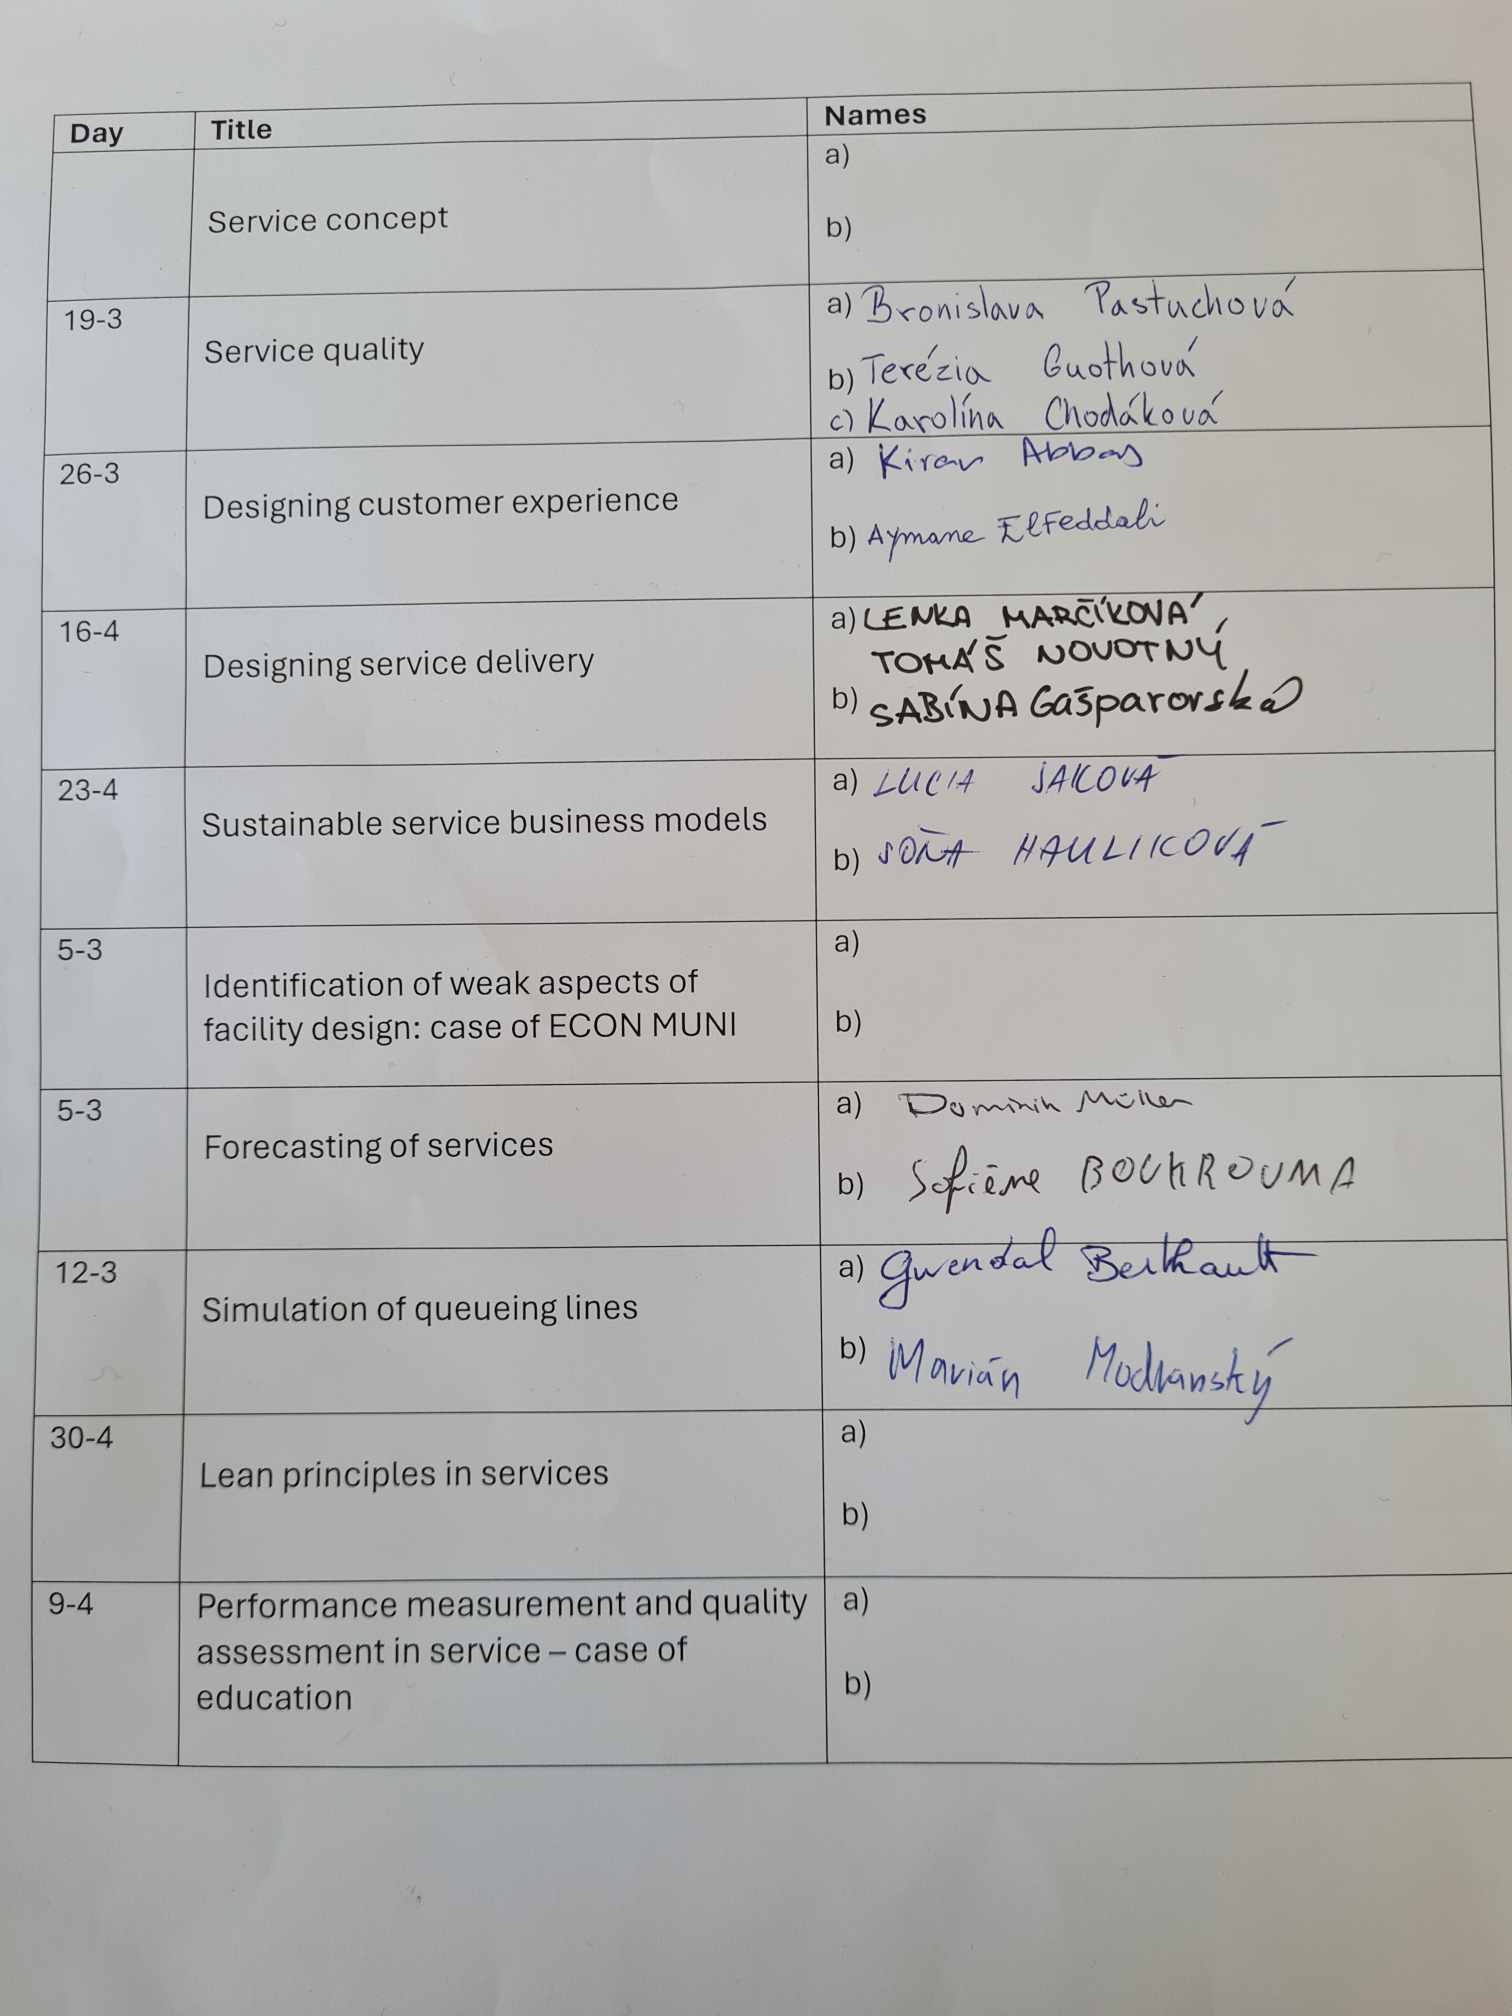 Day Title Names
Service concept
a)
b)
19-3
Service quality
a) Bronislava Pastuchová
b) Terézia Guothová
c) Karolína Chodáková
26-3
Designing customer experience
a) Kiran Abbas
b) Aymane ElFeddali
16-4
Designing service delivery
a) LENKA MARČÍKOVÁ
TOMÁŠ NOVOTNÝ
b) SABÍNA Gašparovská
23-4
Sustainable service business models
a) LUCIA JAKOVÁ
b) SOŇA HAULIKOVÁ
5-3
Identification of weak aspects of
facility design: case of ECON MUNI
a)
b)
5-3
Forecasting of services
a) Dominik Müller
b) Sofiène BOUKROUMA
12-3
Simulation of queueing lines
a) Gwendal Berthault
b) Marián Modranský
30-4
Lean principles in services
a)
b)
9-4
Performance measurement and quality
assessment in service – case of
education
a)
b)